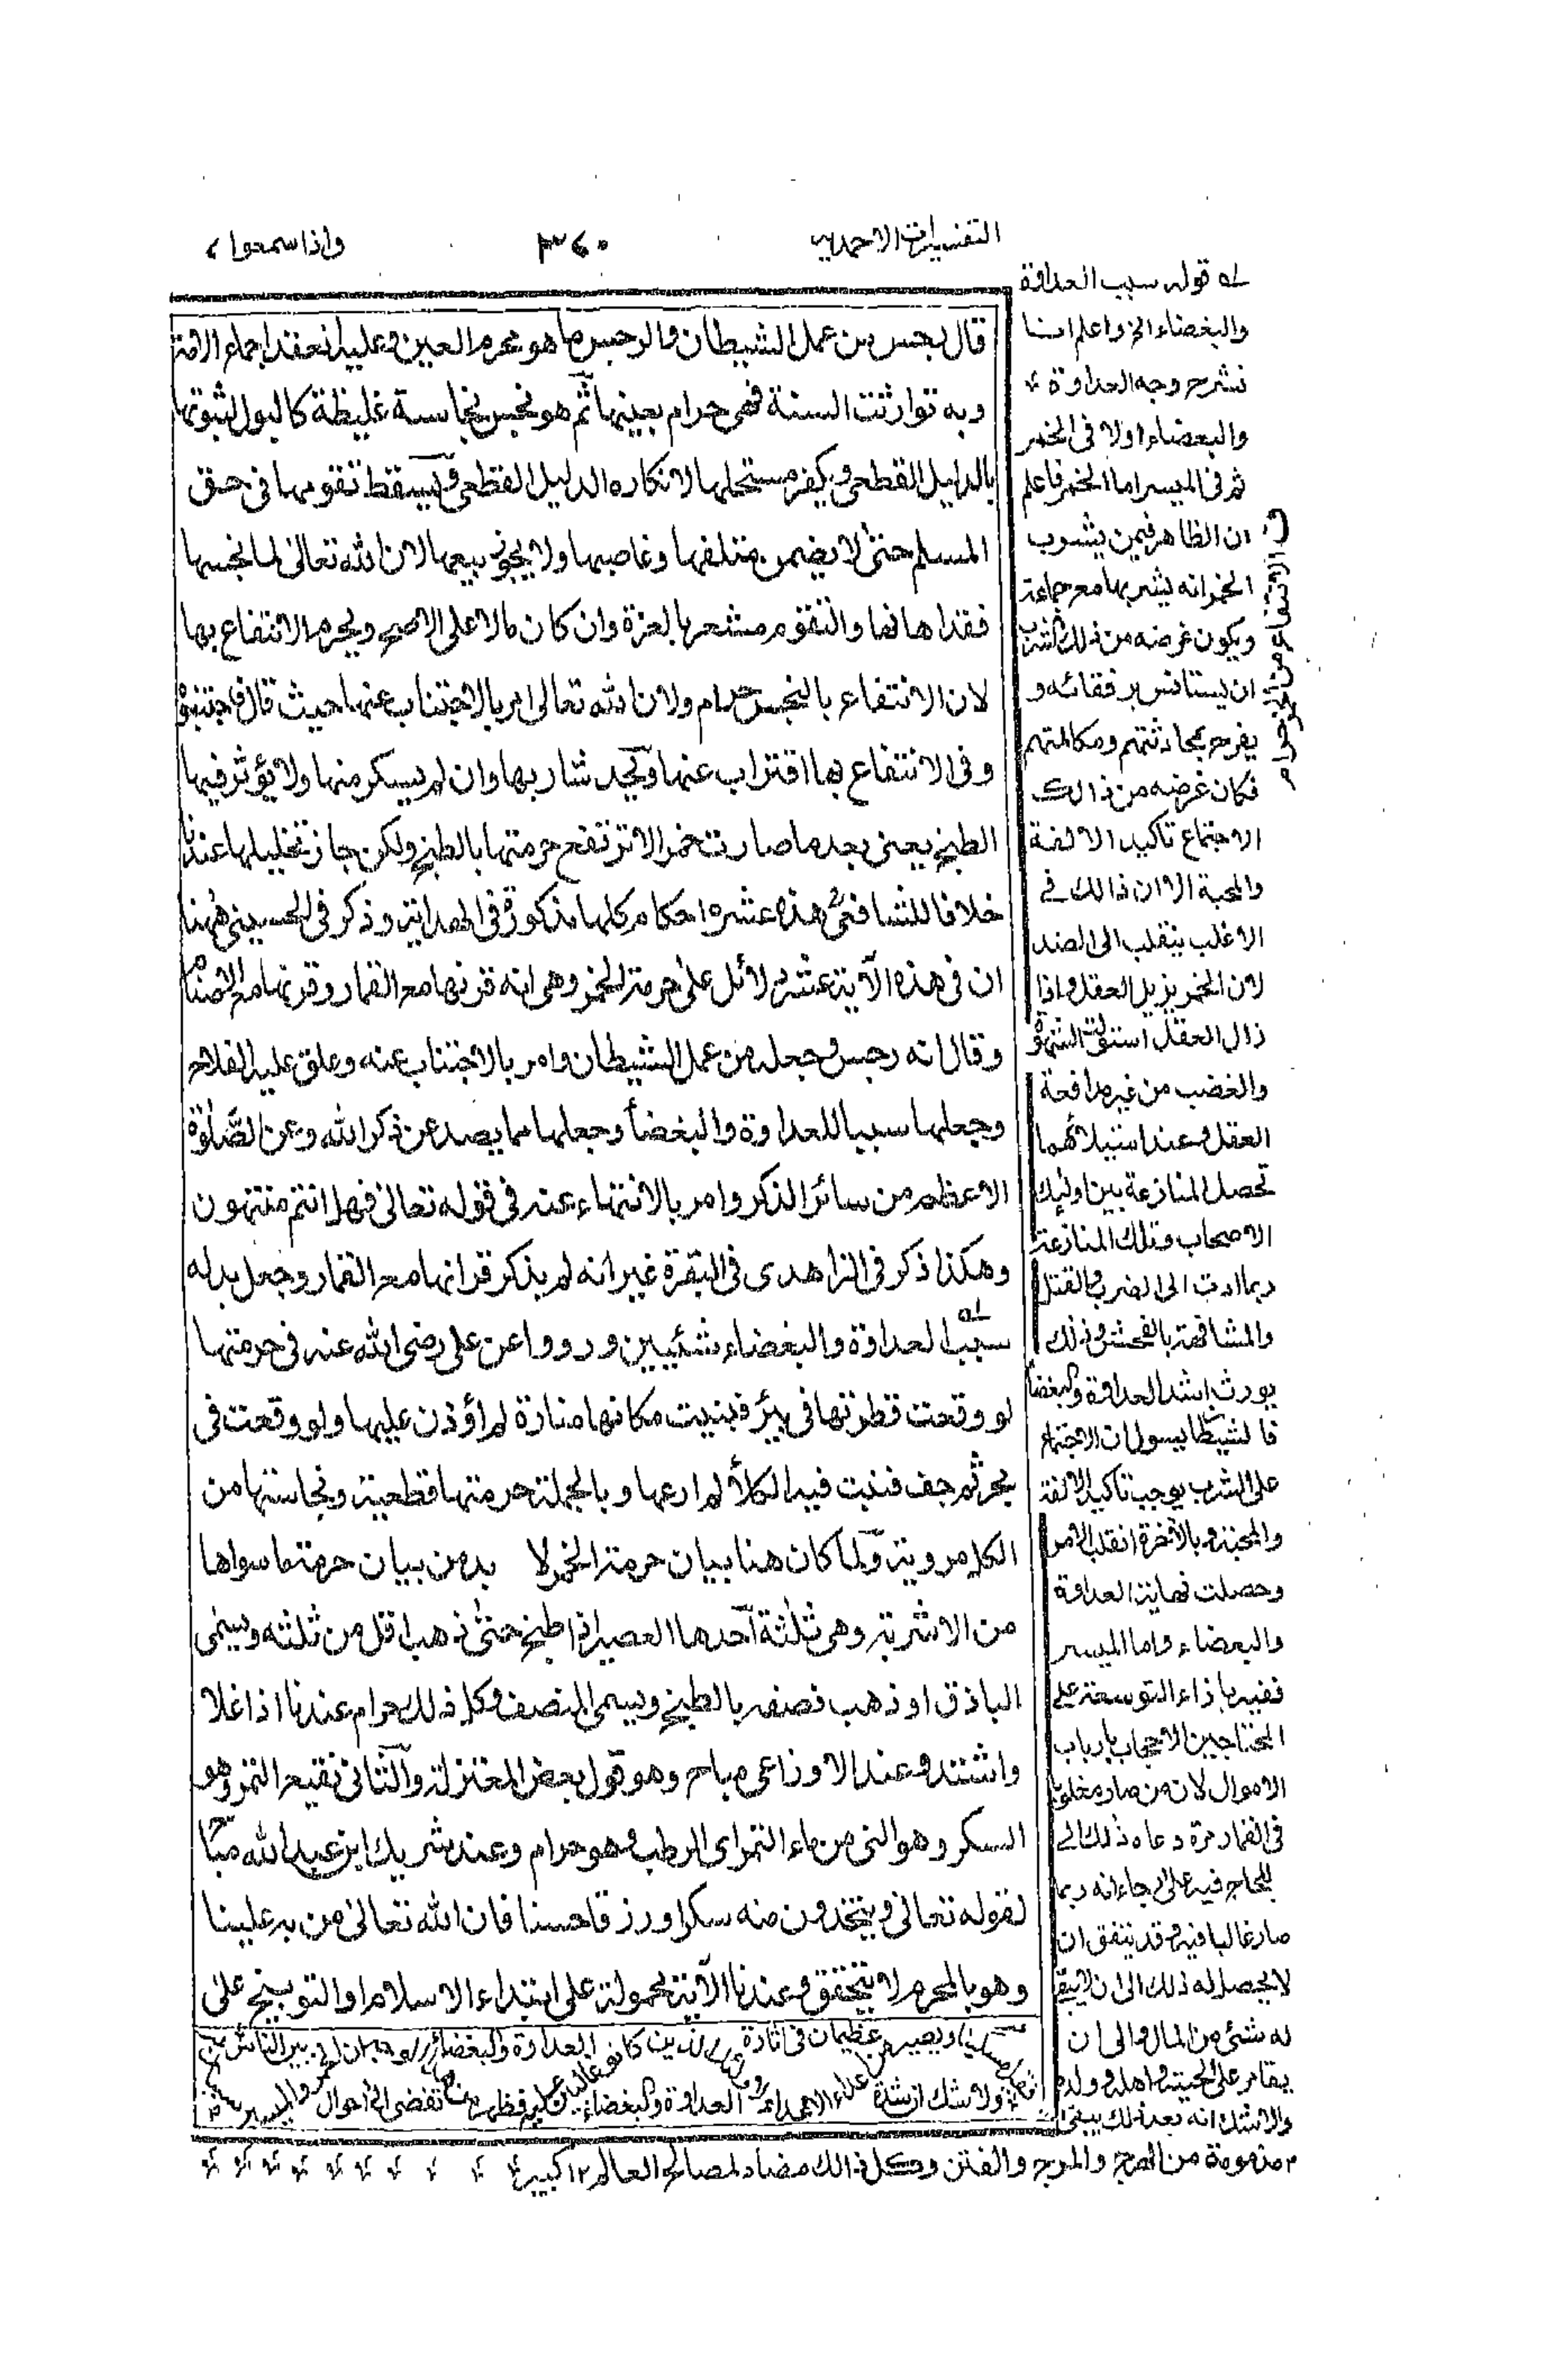 التفسيرات الاحمدية
٣٦٠
واذا سمعوا ٧
قال رجس من عمل الشيطان والرجس ما هو محرم العين وعليه انعقد اجماع الامة
وبه تواترت السنة فهى حرام بعينها ثم هو نجس نجاسة غليظة كالبول لثبوتها
بالدليل القطعى ويكفر مستحلها لانكاره الدليل القطعى ويسقط تقومها فى حق
المسلم حتى لا يضمن متلفها وغاصبها ولا يجوز بيعها لان الله تعالى لما نجسها
فقد اهانها والتقوم مشعر بالعزة وان كان مالا على الاصح ويحرم الانتفاع بها
لان الانتفاع بالنجس حرام ولان الله تعالى امر بالاجتناب عنها حيث قال فاجتنبوه
وفى الانتفاع بها اقتراب عنها ويحد شاربها وان لم يسكر منها ولا يؤثر فيها
الطبخ يعنى بعد ما صارت خمرا لا ترتفع حرمتها بالطبخ ولكن جاز تخليلها عندنا
خلافا للشافعىؒ هذه عشرة احكام كلها مذكورة فى الهداية وذكر فى الحسينى ههنا
ان فى هذه الآية عشر دلائل على حرمة الخمر وهى انه قرنها مع القمار وقرنها مع الاصنام
وقال انه رجس وجعله من عمل الشيطان وامر بالاجتناب عنه وعلق عليه الفلاح
وجعلها سببا للعداوة والبغضاء وجعلها مما يصد عن ذكر الله وعن الصلوٰة
الاعظم من سائر الذكر وامر بالانتهاء عنه فى قوله تعالى فهل انتم منتهون
وهكذا ذكر فى الزاهدى فى البقرة غير انه لم يذكر قرانها مع القمار وجعل بدله
سبب العداوة والبغضاء شيئين ورووا عن على رضى الله عنه فى حرمتها
لو وقعت قطرتها فى بير فبنيت مكانها منارة لم اؤذن عليها ولو وقعت فى
بحر ثم جف فنبت فيه الكلأ لم ارعها وبالجملة حرمتها قطعية ونجاستها من
الكل مروية ولما كان هنا بيان حرمة الخمر لا بد من بيان حرمة ما سواها
من الاشربة وهى ثلثة احدها العصير اذا طبخ حتى ذهب اقل من ثلثه ويسمى
الباذق او ذهب نصفه بالطبخ ويسمى المنصف وكل ذلك حرام عندنا اذا غلا
واشتد وعند الاوزاعى مباح وهو قول بعض المعتزلة والثانى نقيع التمر وهو
السكر وهو النى من ماء التمر اى الرطب وهو حرام وعند شريك ابن عبد الله مباح
لقوله تعالى وتتخذون منه سكرا ورزقا حسنا فان الله تعالى من به علينا
وهو بالمحرم لا يتحقق وعندنا الآية محمولة على ابتداء الاسلام او التوبيخ على
له قوله سبب العداوة
والبغضاء الخ واعلم انا
نشرح وجه العداوة
والبغضاء اولا فى الخمر
ثم فى الميسر اما الخمر فاعلم
ان الظاهر فيمن يشرب
الخمر انه يشربها مع جماعة
ويكون غرضه من ذلك الشرب
ان يستانس برفقائه و
يفرح بمحادثتهم ومكالمتهم
فكان غرضه من ذالك
الاجتماع تاكيد الالفة
والمحبة الا ان ذالك فى
الاغلب ينقلب الى الضد
لان الخمر يزيل العقل واذا
زال العقل استولت الشهوة
والغضب من غير مدافعة
العقل وعند استيلائهما
تحصل المنازعة بين اولئك
الاصحاب وتلك المنازعة
ربما ادت الى الضرب والقتل
والمشافهة بالفحش وذلك
يورث اشد العداوة والبغضاء
فالشيطان يسول ان الاجتماع
على الشرب يوجب تاكيد الالفة
والمحبة وبالآخرة انقلب الامر
وحصلت نهاية العداوة
والبغضاء واما الميسر
ففيه باذاء التوسعة على
المحتاجين الاجحاف بارباب
الاموال لان من صار مغلوبا
فى القمار مرة دعاه ذلك الى
اللجاج فيه على رجاء انه ربما
صار غالبا فيه وقد يتفق ان
لا يحصل له ذلك الى ان لا يبقى
له شئ من المال والى ان
يقامر على لحيته واهله وولده
ولا شك انه بعد ذلك يبقى
مذمومة من الهرج والمرج والفتن وكل ذالك مضاد لمصالح العالم ١٢ كبير